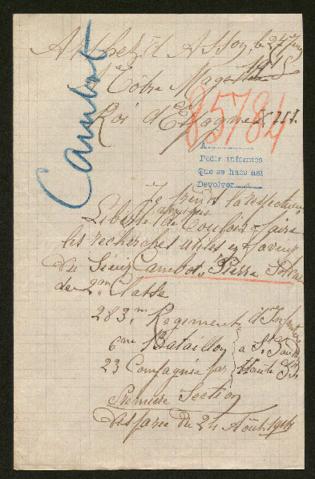 Arthez d'Asson, le 27
1915
A Votre Majesté
Roi d'Espagne
85784
Cambot
A
Pedir informes
Que se hace así
Devolver
Je prends la respectueuse
Liberté de vouloir faire
les recherches utiles en faveur
du Sieur Cambot Pierre Soldat
de 2me Classe
283me Regiment d'Infanterie
6me Bataillon à St
23 Compagnie par Haute
Première Section
Disparu du 24 Août 1914